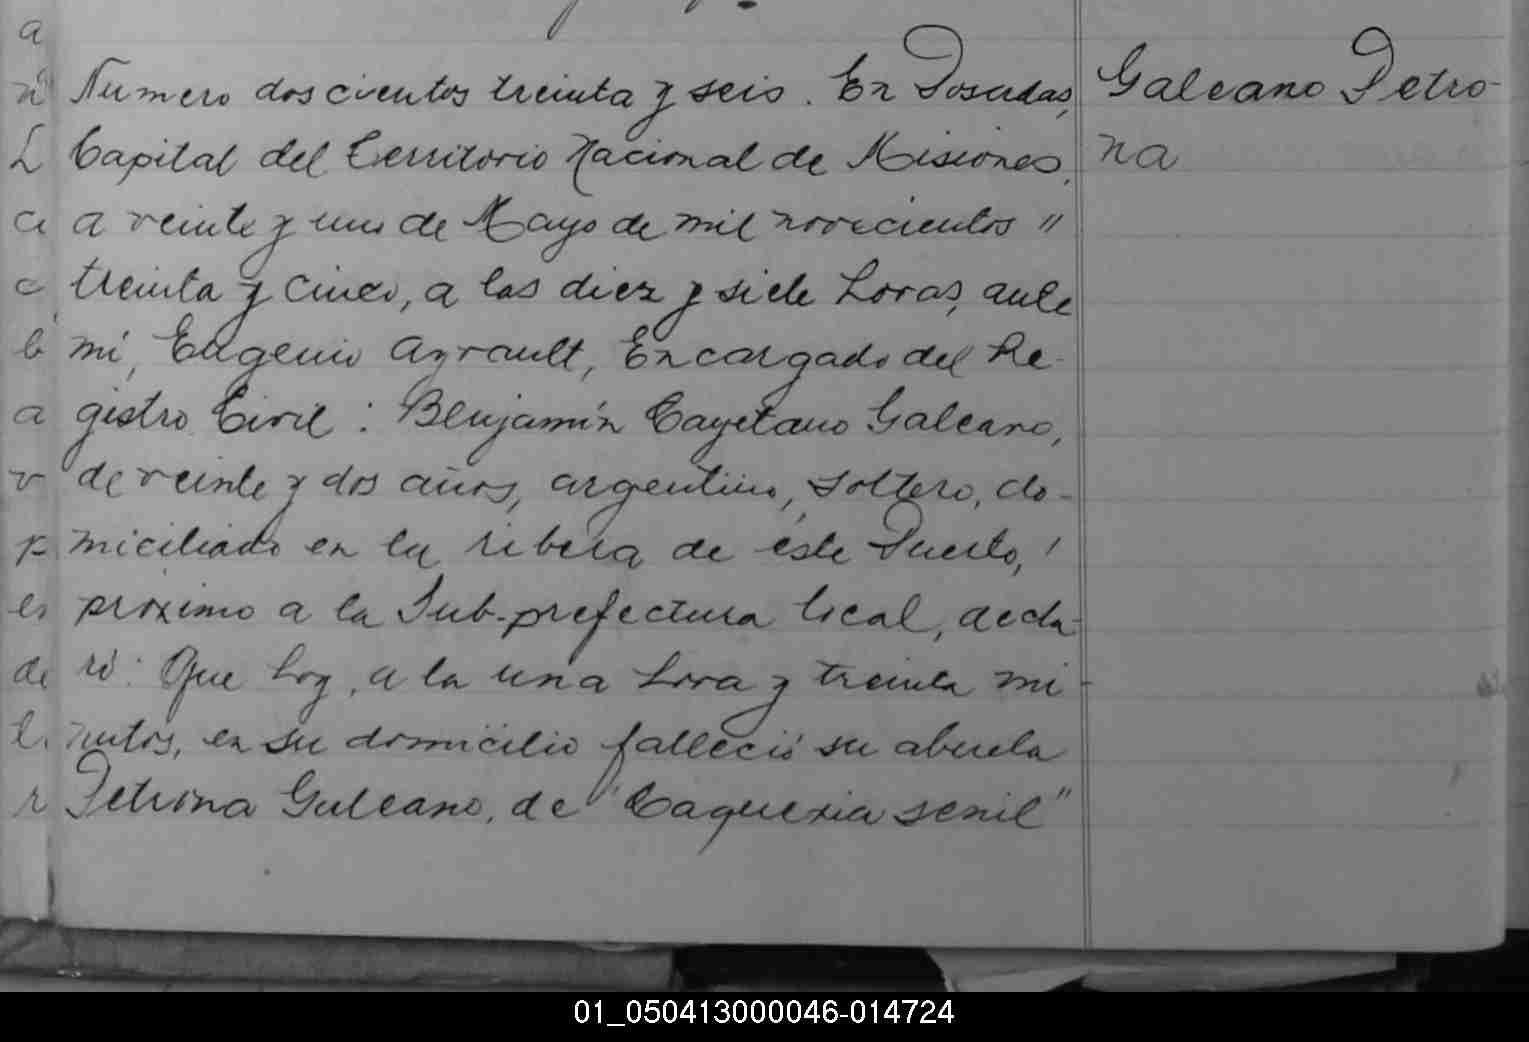 Numero doscientos treinta y seis. En Posadas,
Capital del Territorio Nacional de Misiones,
a veinte y uno de Mayo de mil novecientos "
treinta y cinco, a las diez y siete horas, ante
mí, Eugenio Ayrault, Encargado del Re-
gistro Civil: Benjamín Cayetano Galeano,
de veinte y dos años, argentino, soltero, do-
miciliado en la ribera de éste Puerto,
próximo a la Sub-prefectura local, decla-
ró: Que hoy, a la una hora y treinta mi-
nutos, en su domicilio falleció su abuela
Petrona Galeano, de "Caquexia senil"
Galeano Petro-
na
01_050413000046-014724